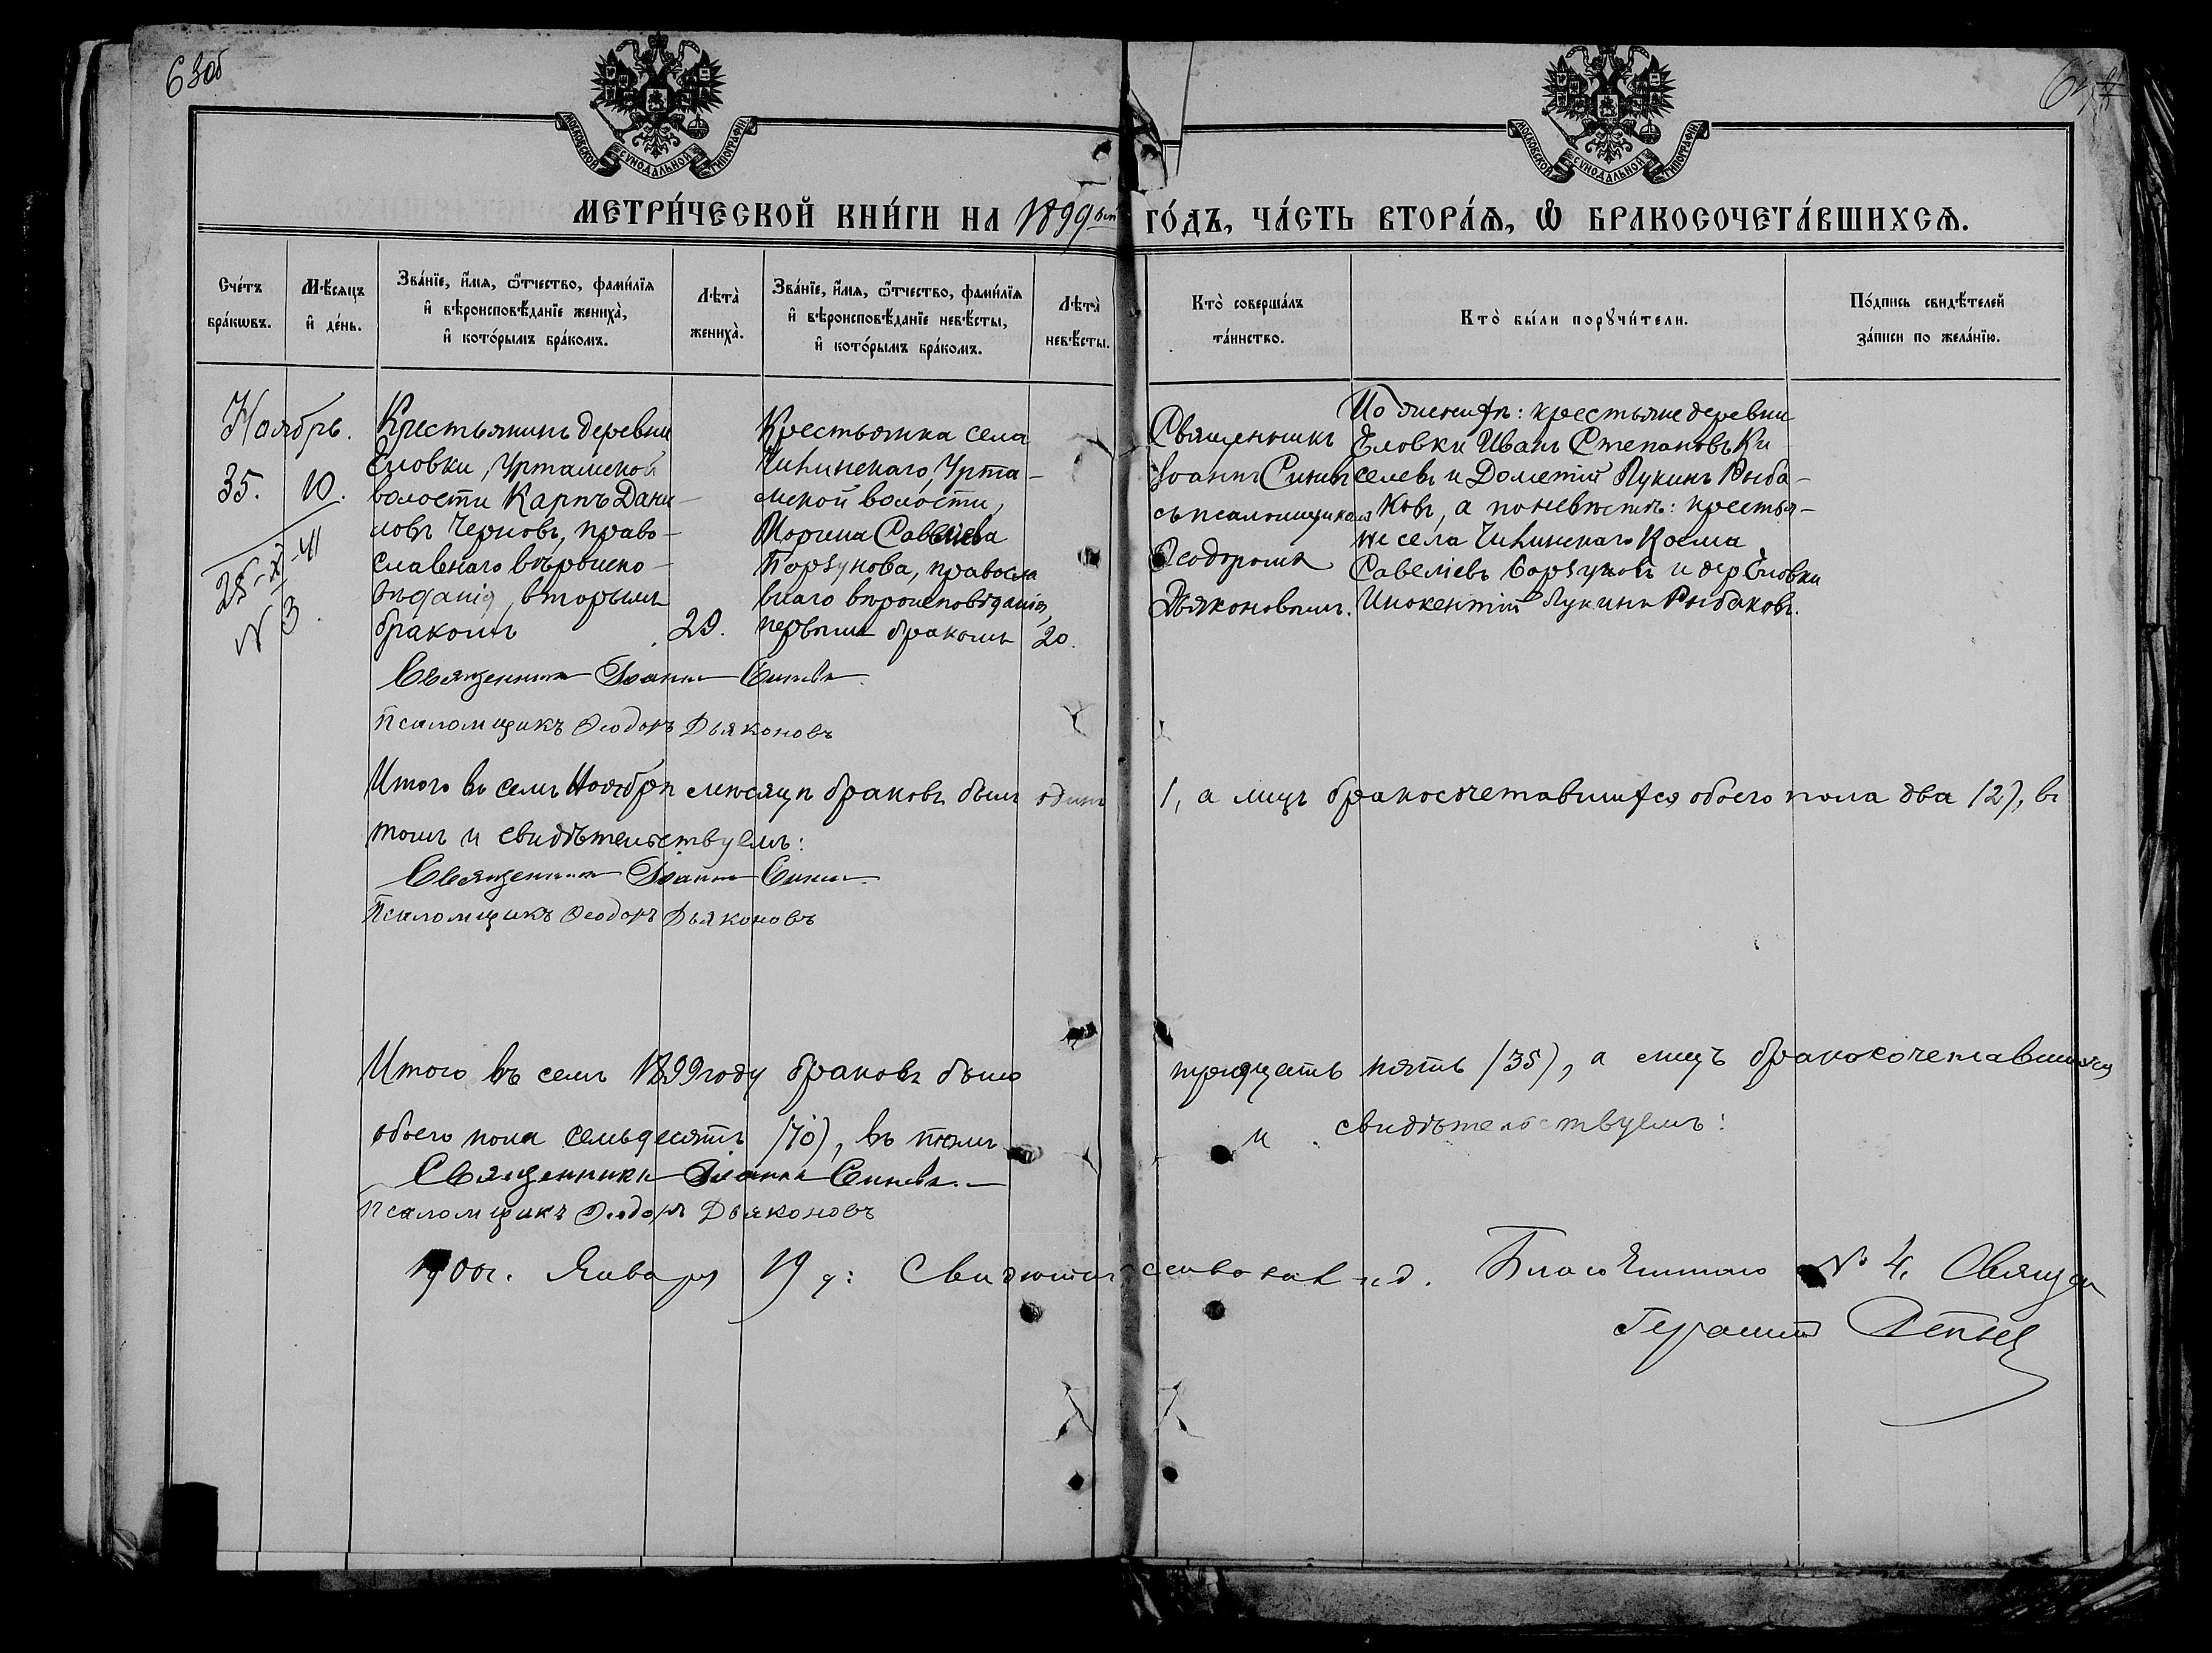 63об
МОСКОВСКОЙ СѴНОДАЛЬНОЙ ТИПОГРАФІИ
МОСКОВСКОЙ СѴНОДАЛЬНОЙ ТИПОГРАФІИ
МЕТРИ́ЧЕСКОЙ КНИ́ГИ НА 1899 ГО́ДЪ, ЧА́СТЬ ВТОРА́Ѧ, Ѡ БРАКОСОЧЕТА́ВШИХСѦ.
Сче́тъ
бра́кѡвъ.
Мѣ́сѧцъ
и҆ де́нь.
Зва́нїе, и҆́мѧ, ѻ҆́тчество, фами́лїѧ
и҆ вѣроисповѣ́данїе жениха̀,
и҆ кото́рымъ бра́комъ.
Лѣта̀
жениха̀.
Зва́нїе, и҆́мѧ, ѻ҆́тчество, фами́лїѧ
и҆ вѣроисповѣ́данїе невѣ́сты,
и҆ кото́рымъ бра́комъ.
Лѣта̀
невѣ́сты.
Кто̀ соверша́лъ
та́инство.
Кто̀ бы́ли порꙋчи́тели.
По́дпись свидѣ́телей
за́писи по жела́нїю.
Ноябрь.
35.
10.
25-X-41
N 3.
Крестьянинъ деревни
Еловки, Уртамской
волости Карпъ Дани-
ловъ Черновъ, право-
славнаго вѣроиспо-
вѣданія, вторымъ
бракомъ
29.
Крестьянка села
Чилинскаго, Урта-
мской волости,
Марина Савелiева
Борзунова, правосла
внаго вѣроисповѣданія,
первымъ бракомъ
20.
Священникъ
Іоаннъ Синевъ
съ псаломщикомъ
Ѳеодоромъ
Дьяконовымъ.
По женихѣ: крестьяне деревни
Еловки Иванъ Степановъ Ки
селевъ и Дометій Лукинъ Рыба-
ковъ, а по невѣстѣ: крестья-
не села Чилинскаго Косма
Савеліевъ Борзуновъ и дер. Еловки
Инокентій Лукинъ Рыбаковъ.
Священникъ Іоаннъ Синевъ.
Псаломщикъ Ѳеодоръ Дьяконовъ
Итого въ семъ Ноябрѣ мѣсяцѣ браковъ былъ одинъ 1, а лицъ бракосочетавшихся обоего пола два (2), въ
томъ и свидѣтельствуемъ:
Священникъ Іоаннъ Синевъ.
Псаломщикъ Ѳеодоръ Дьяконовъ
Итого въ семъ 1899 году браковъ было тридцать пять (35), а лицъ бракосочетавшихся
обоего пола семьдесятъ (70), въ томъ и свидѣтельствуемъ:
Священникъ Іоаннъ Синевъ.
Псаломщикъ Ѳеодоръ Дьяконовъ
1900 г. Января 19 д: Свидѣтельствовалъ и.д. Благочиннаго № 4. Священ